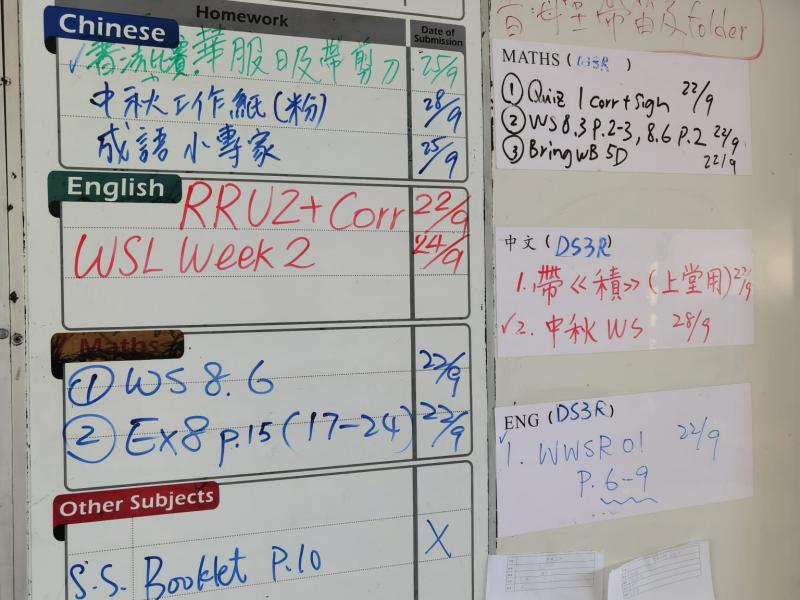 Homework
Date of Submission
Chinese
華服日及帶剪刀 25/9
中秋工作紙(粉) 28/9
成語小專家 25/9
English
RRU2+ Corr 22/9
WSL Week 2 24/9
Maths
① WS 8.6 22/9
② Ex8 p.15 (17-24) 22/9
Other Subjects
S.S. Booklet P.10 X
及folder
MATHS ( )
① Quiz 1 corr + sign 22/9
② WS 8.3 P.2-3, 8.6 P.2 22/9
③ Bring WB 5D 22/9
中文 ( DS3R )
1. 帶《積》(上堂用) 22/9
✓2. 中秋 WS 28/9
ENG ( DS3R )
✓1. WWSR 01 22/9
P. 6-9